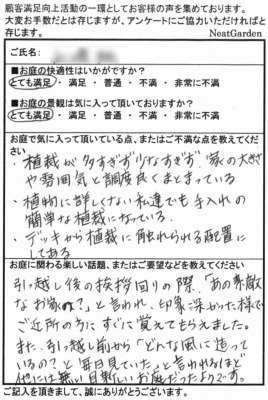 顧客満足向上活動の一環としてお客様の声を集めております。
大変お手数だとは存じますが、アンケートにご協力いただければと
存じます。 NeatGarden
ご氏名:
■お庭の快適性はいかがですか?
とても満足・満足・普通・不満・非常に不満
■お庭の景観は気に入って頂いてますか?
とても満足・満足・普通・不満・非常に不満
お庭で気に入って頂いている点、またはご不満な点を教えてください
・植栽が多すぎず少なすぎず、家の大きさ
や雰囲気と調度良くまとまっている
・植物に詳しくない私達でも手入れの
簡単な植栽になっている。
・デッキから植栽に触れられる配置に
してある
お庭に関わる楽しい話題、またはご要望などを教えてください
引っ越し後の挨拶回りの際、「あの素敵
なお家の?」と言われ、印象深かった様で
ご近所の方にすぐに覚えてもらえました。
また、引っ越し前から「どんな風に造って
いるの?と毎日見ていた」と言われるほど
他には無い目新しいお庭だったようです。
ご記入を頂きまして、誠にありがとうございます。